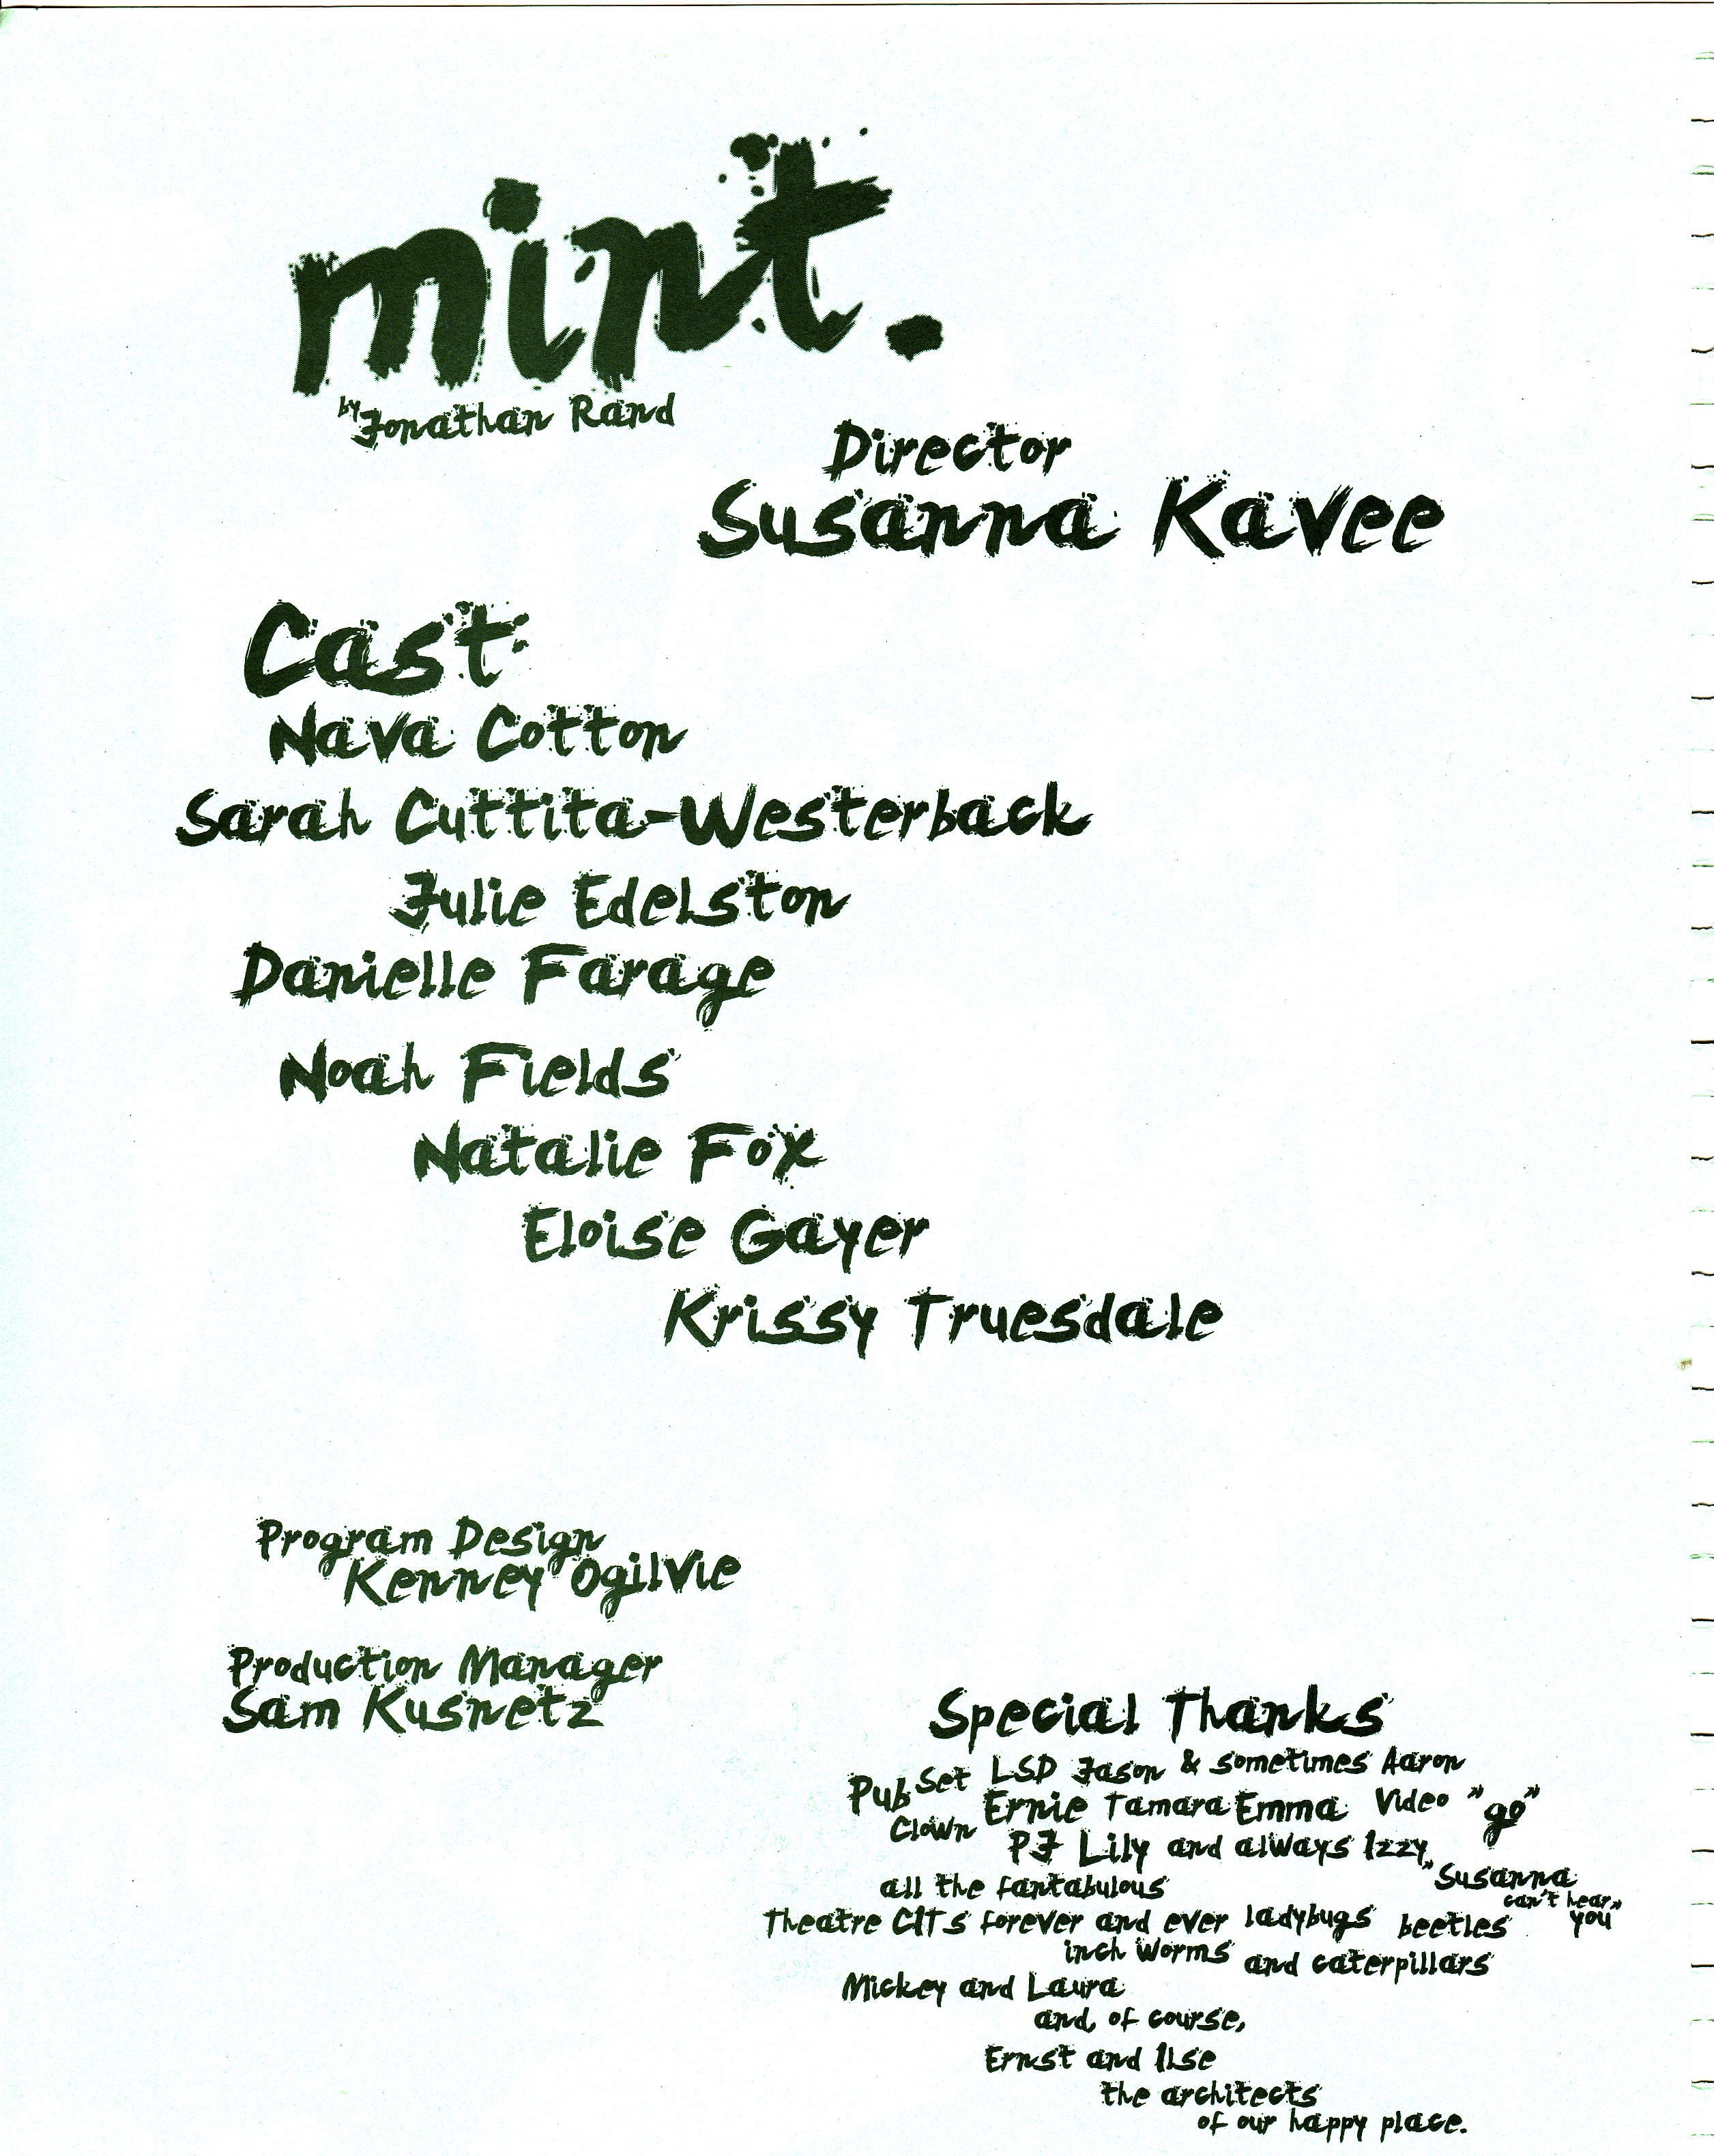 mint.
by Jonathan Rand
Director
Susanna Kavee
Cast
Nava Cotton
Sarah Cuttita-Westerback
Julie Edelston
Danielle Farage
Noah Fields
Natalie Fox
Eloise Gayer
Krissy Truesdale
Program Design
Kenney Ogilvie
Production Manager
Sam Kusnetz
Special Thanks
Pub Set LSD Jason & sometimes Aaron
Clown Ernie Tamara Emma Video "go"
PJ Lily and always Izzy
"Susanna can't hear you"
all the fantabulous
Theatre CITs forever and ever ladybugs beetles
inch worms and caterpillars
Mickey and Laura
and, of course,
Ernst and Ilse
the architects
of our happy place.